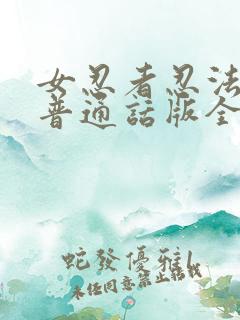 女忍者忍法
普通話版全
蛇發優雅l
未经同意禁止转载